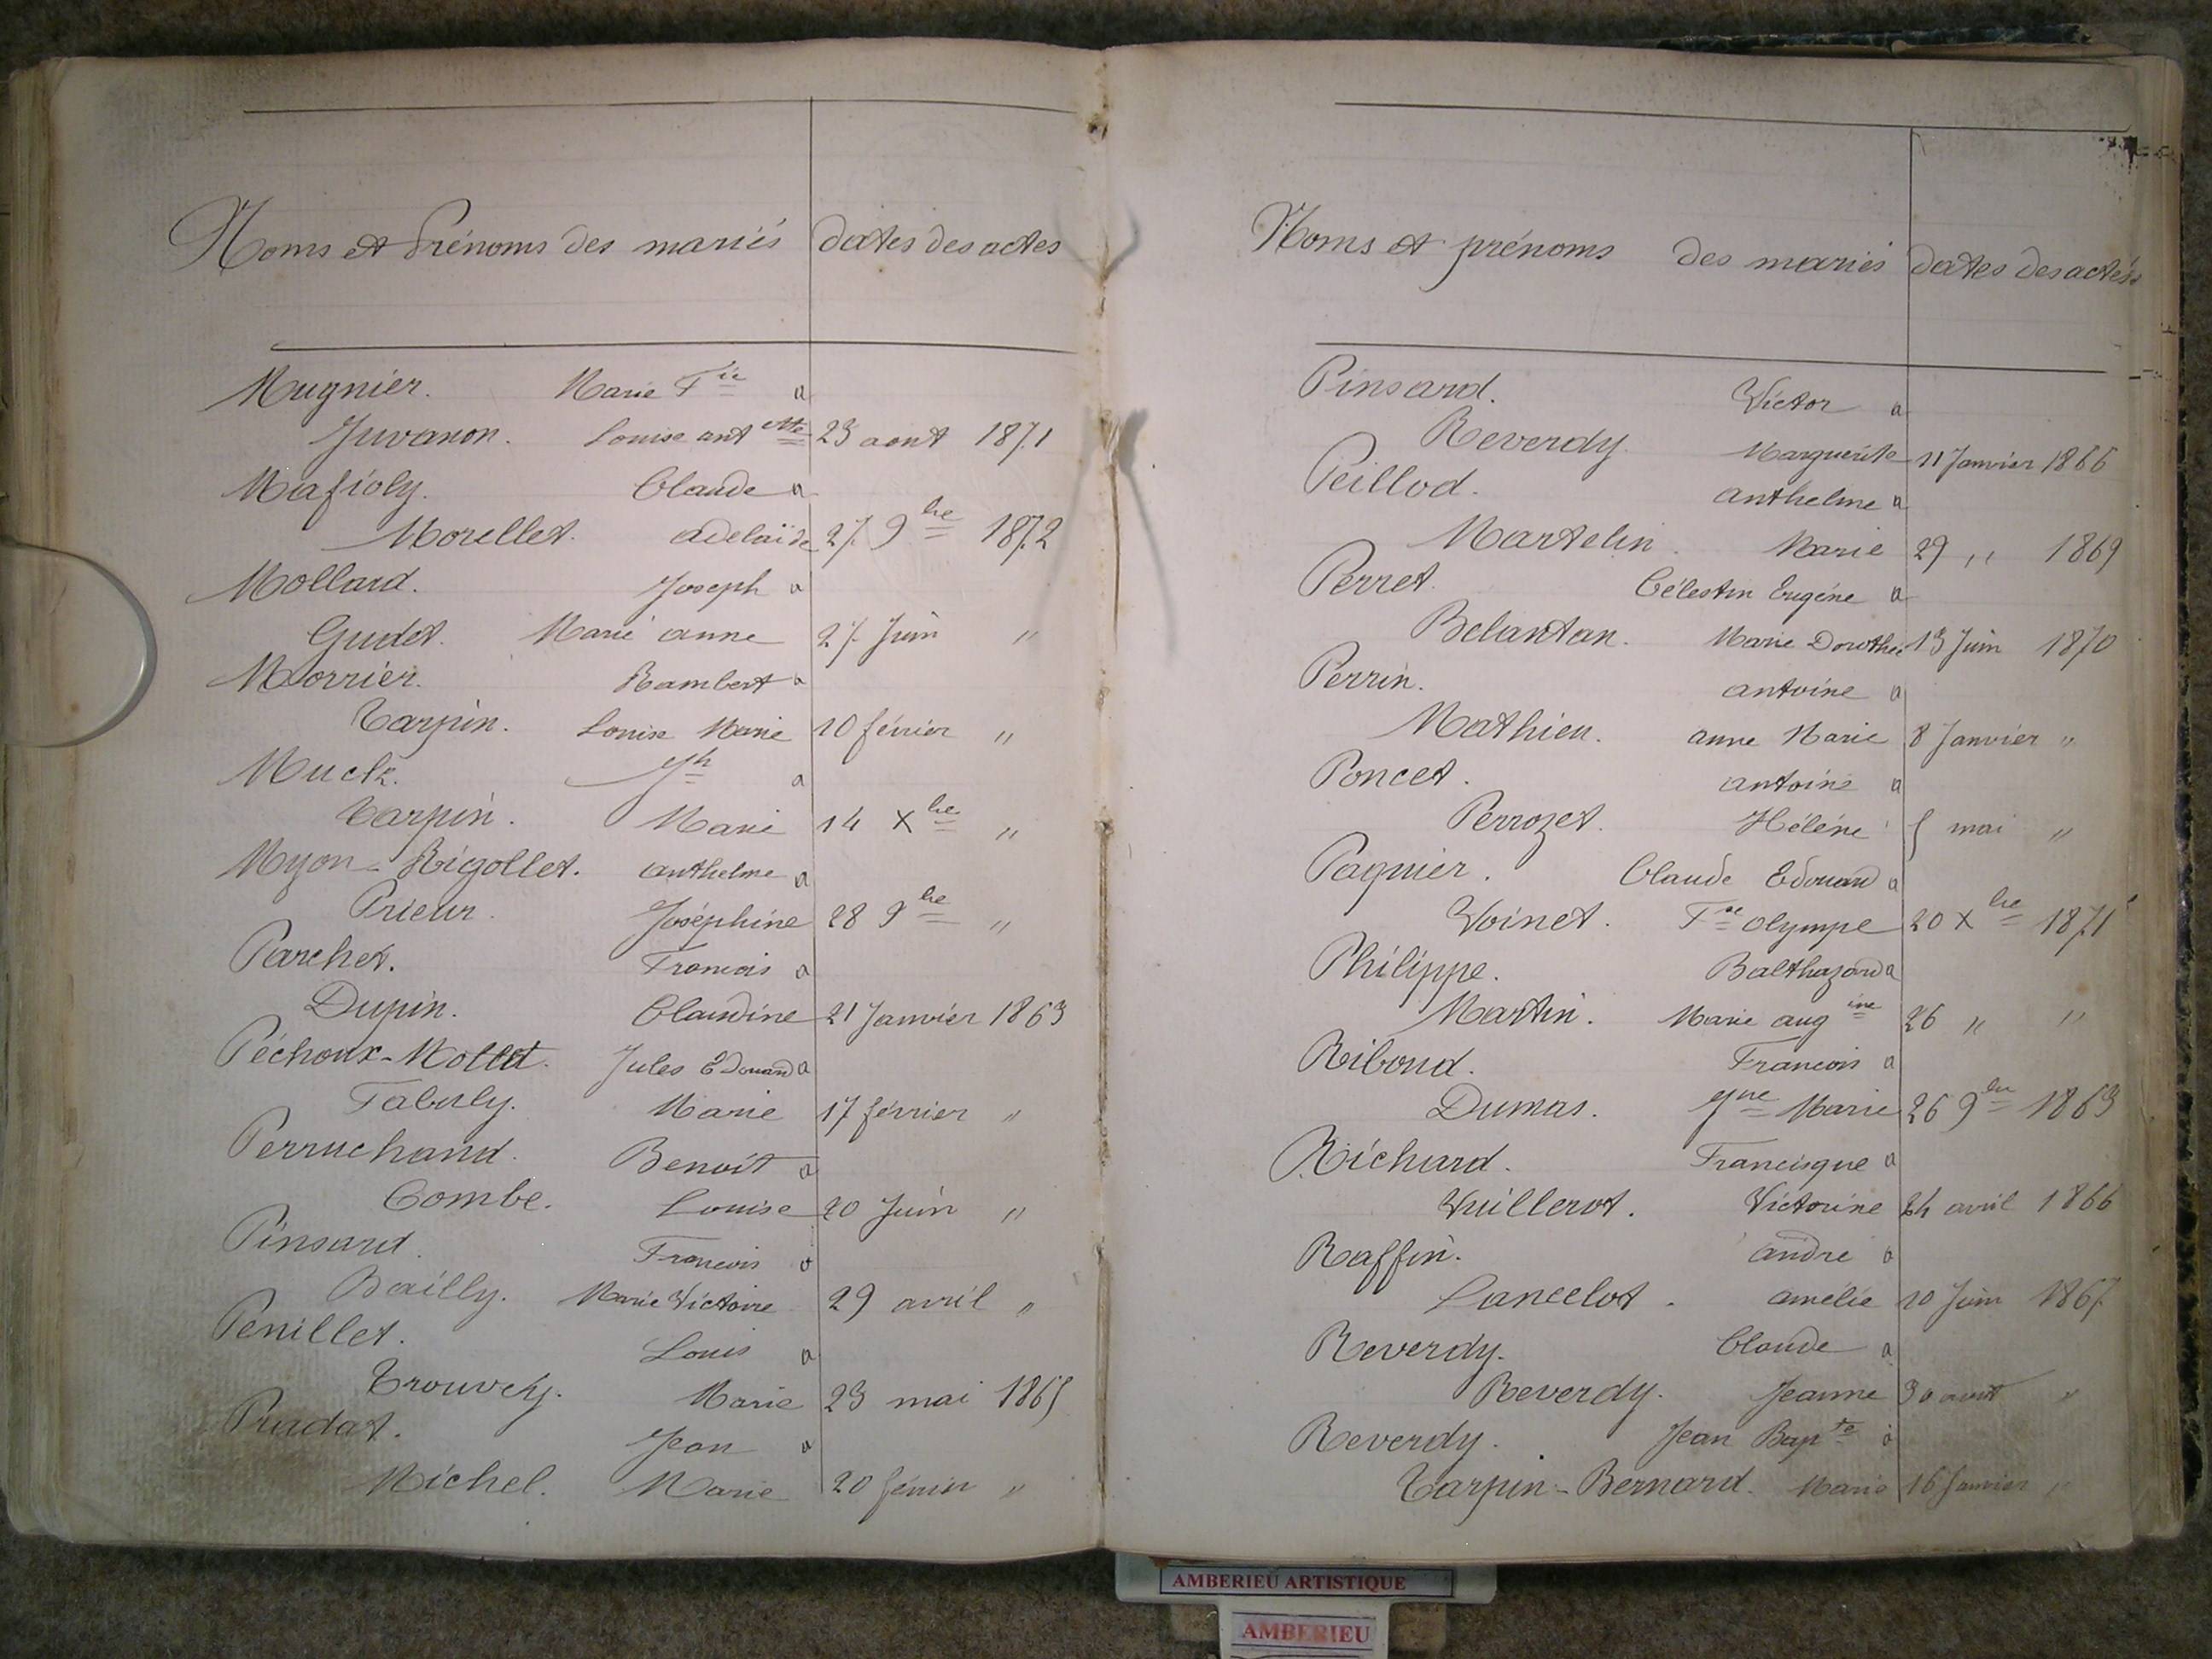 Noms et Prénoms des mariés dates des actes
Mugnier. Marie F.ie a
Juvanon. Louise ant.ette 23 aout 1871
Mafioly. Claude a
Morellet. adelaïde 27 9bre 1872
Mollard. Joseph a
Gudet. Marie anne 27 Juin "
Morrier. Rambert a
Tarpin. Louise Marie 10 février "
Muck. Jh a
Tarpin. Marie 14 Xbre "
Myon-Rigollet. anthelme a
Prieur. Joséphine 28 9bre "
Parchet. Francois a
Dupin. Claudine 21 Janvier 1863
Péchoux-Mollet. Jules Edouard a
Tabuly. Marie 17 février "
Perruchaud. Benoit a
Combe. Louise 20 Juin "
Pinsard. Francois a
Bailly. Marie Victoire 29 avril "
Penillet. Louis a
Trouvely. Marie 23 mai 1865
Pradat. Jean a
Michel. Marie 20 févrir "
Noms et prénoms des mariés dates des actes
Pinsard. Victor a
Reverdy. Marguerite 11 Janvier 1866
Peillod. anthelme a
Martelin. Marie 29 " 1869
Perret. Célestin Eugéne a
Belantan. Marie Dorothée 13 Juin 1870
Perrin. antoine a
Mathieu. anne Marie 8 Janvier "
Poncet. antoine a
Perrozet. Heléne 5 mai "
Pagnier. Claude Edouard a
Voinet. Fse Olympe 20 Xbre 1871
Philippe. Balthazard a
Martin. Marie aug.ine 26 " "
Riboud. Francois a
Dumas. Jne Marie 26 9bre 1863
Richard. Francisque a
Vuillerot. Victorine 24 avril 1866
Raffin. andré a
Lancelot. amélie 10 Juin 1867
Reverdy. Claude a
Reverdy. Jeanne 30 aout "
Reverdy. Jean Bapte a
Tarpin-Bernard. Marie 16 Janvier "
AMBERIEU ARTISTIQUE
AMBERIEU